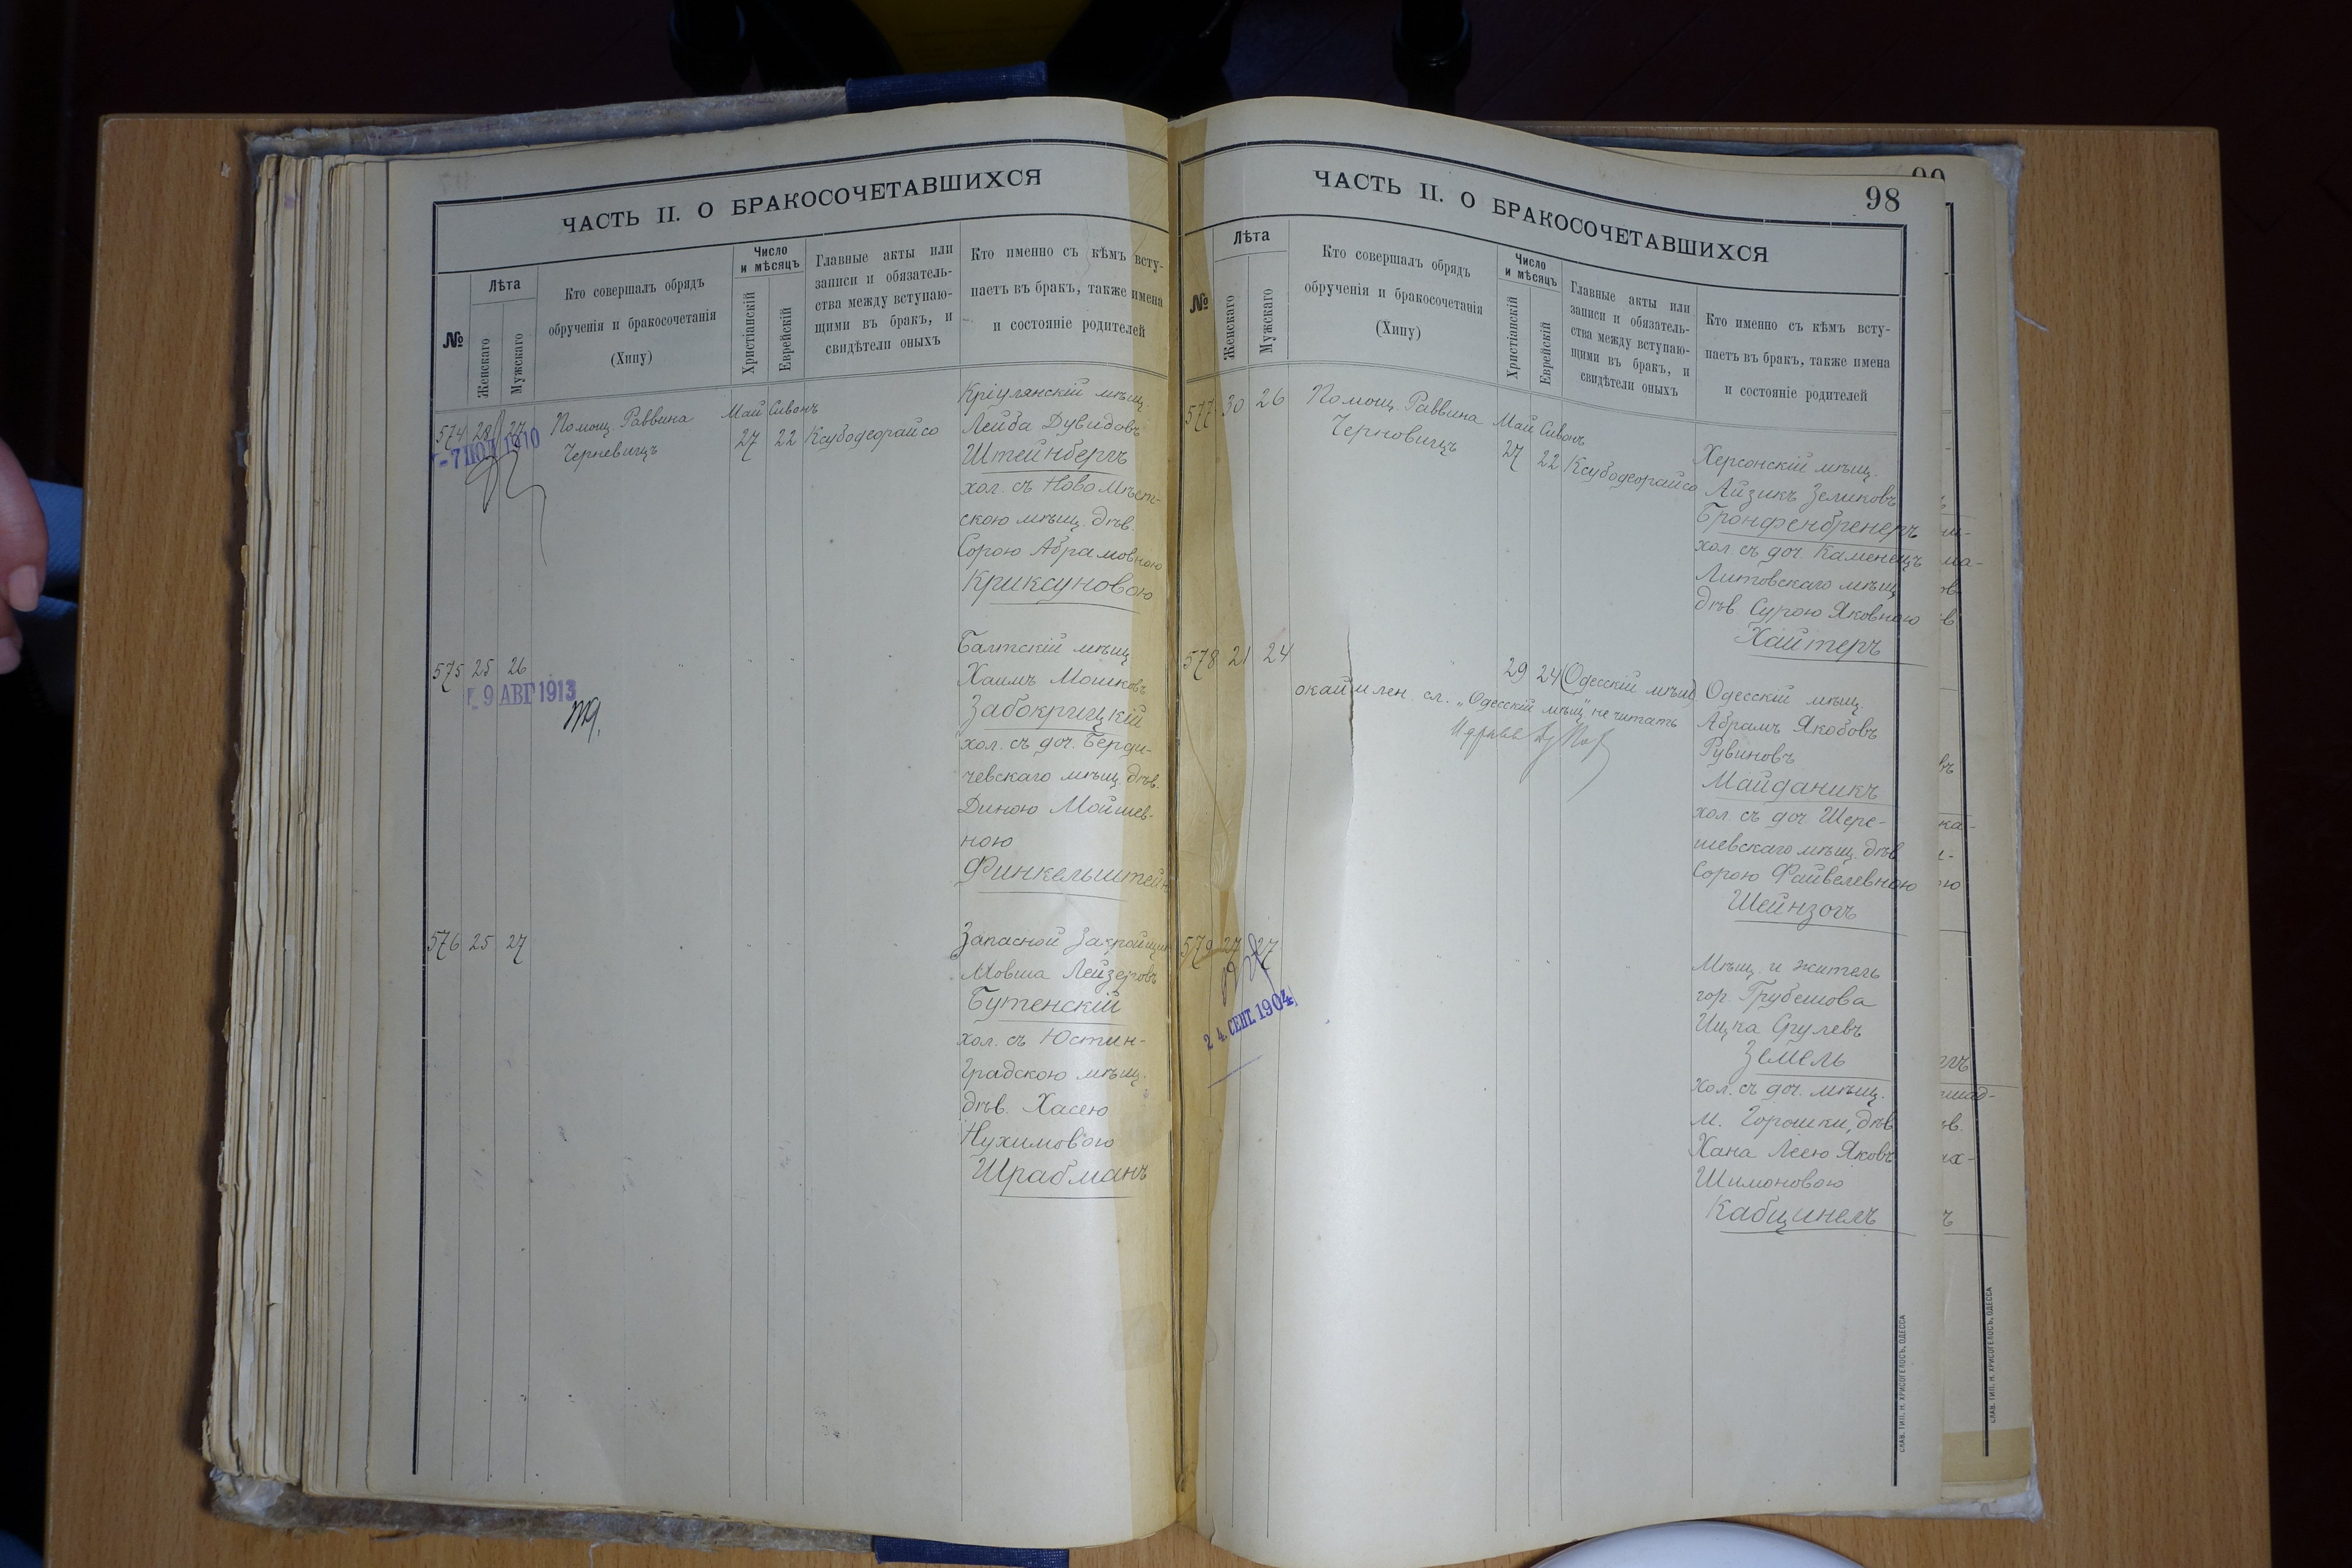 ЧАСТЬ II. О БРАКОСОЧЕТАВШИХСЯ
№
Лѣта
Женскаго
Мужскаго
Кто совершалъ обрядъ
обрученія и бракосочетанія
(Хипу)
Число
и мѣсяцъ
Христіанскій
Еврейскій
Главные акты или
записи и обязатель-
ства между вступаю-
щими въ бракъ, и
свидѣтели оныхъ
Кто именно съ кѣмъ всту-
паетъ въ бракъ, также имена
и состояніе родителей
574 28 27 Помощ. Раввина Май Сивонъ
Черневицъ 27 22 Ксубодеорайсо
-7 ІЮЛ 1910
Кріулянскій мѣщ.
Лейба Дувидовъ
Штейнбергъ
хол. съ Ново Мѣст-
скою мѣщ. дѣв.
Сорою Абрамовною
Криксуновою
575 25 26
9 АВГ 1913
Балтскій мѣщ.
Хаимъ Мошковъ
Забокрицкій
хол. съ доч. Берди-
чевскаго мѣщ. дѣв.
Диною Мойшев-
ною
Финкельштейн
576 25 27
Запасной Закройщик
Мовша Лейзеровъ
Бутенскій
хол. съ Юстин-
градскою мѣщ.
дѣв. Хасею
Нухимовою
Шрабманъ
98
ЧАСТЬ II. О БРАКОСОЧЕТАВШИХСЯ
№
Лѣта
Женскаго
Мужскаго
Кто совершалъ обрядъ
обрученія и бракосочетанія
(Хипу)
Число
и мѣсяцъ
Христіанскій
Еврейскій
Главные акты или
записи и обязатель-
ства между вступаю-
щими въ бракъ, и
свидѣтели оныхъ
Кто именно съ кѣмъ всту-
паетъ въ бракъ, также имена
и состояніе родителей
577 30 26 Помощ. Раввина Май Сивонъ
Черновицъ 27 22 Ксубодеорайсо
Херсонскій мѣщ.
Айзикъ Зеликовъ
Бронфенбренеръ
хол. съ доч. Каменецъ
Литовскаго мѣщ.
дѣв. Сурою Яковною
Хайтеръ
578 21 24 29 24 (Одесскій мѣщ)
окаймлен. сл. „Одесскій мѣщ" не читать
Одесскій мѣщ.
Абрамъ Якобовъ
Рувиновъ
Майданикъ
хол. съ доч. Шере-
шевскаго мѣщ. дѣв.
Сорою Файвелевною
Шейнзонъ
579 27 27
24. СЕНТ. 1904
Мѣщ. и житель
гор. Грубешова
Ицка Сруlевъ
Земель
хол. съ доч. мѣщ.
м. Горошки, дѣв.
Хана Леею Яковъ
Шимоновою
Кабцинелъ
СЛАВ. ТИП. Н. ХРИСОГЕЛОСЪ, ОДЕССА
СЛАВ. ТИП. Н. ХРИСОГЕЛОСЪ, ОДЕССА